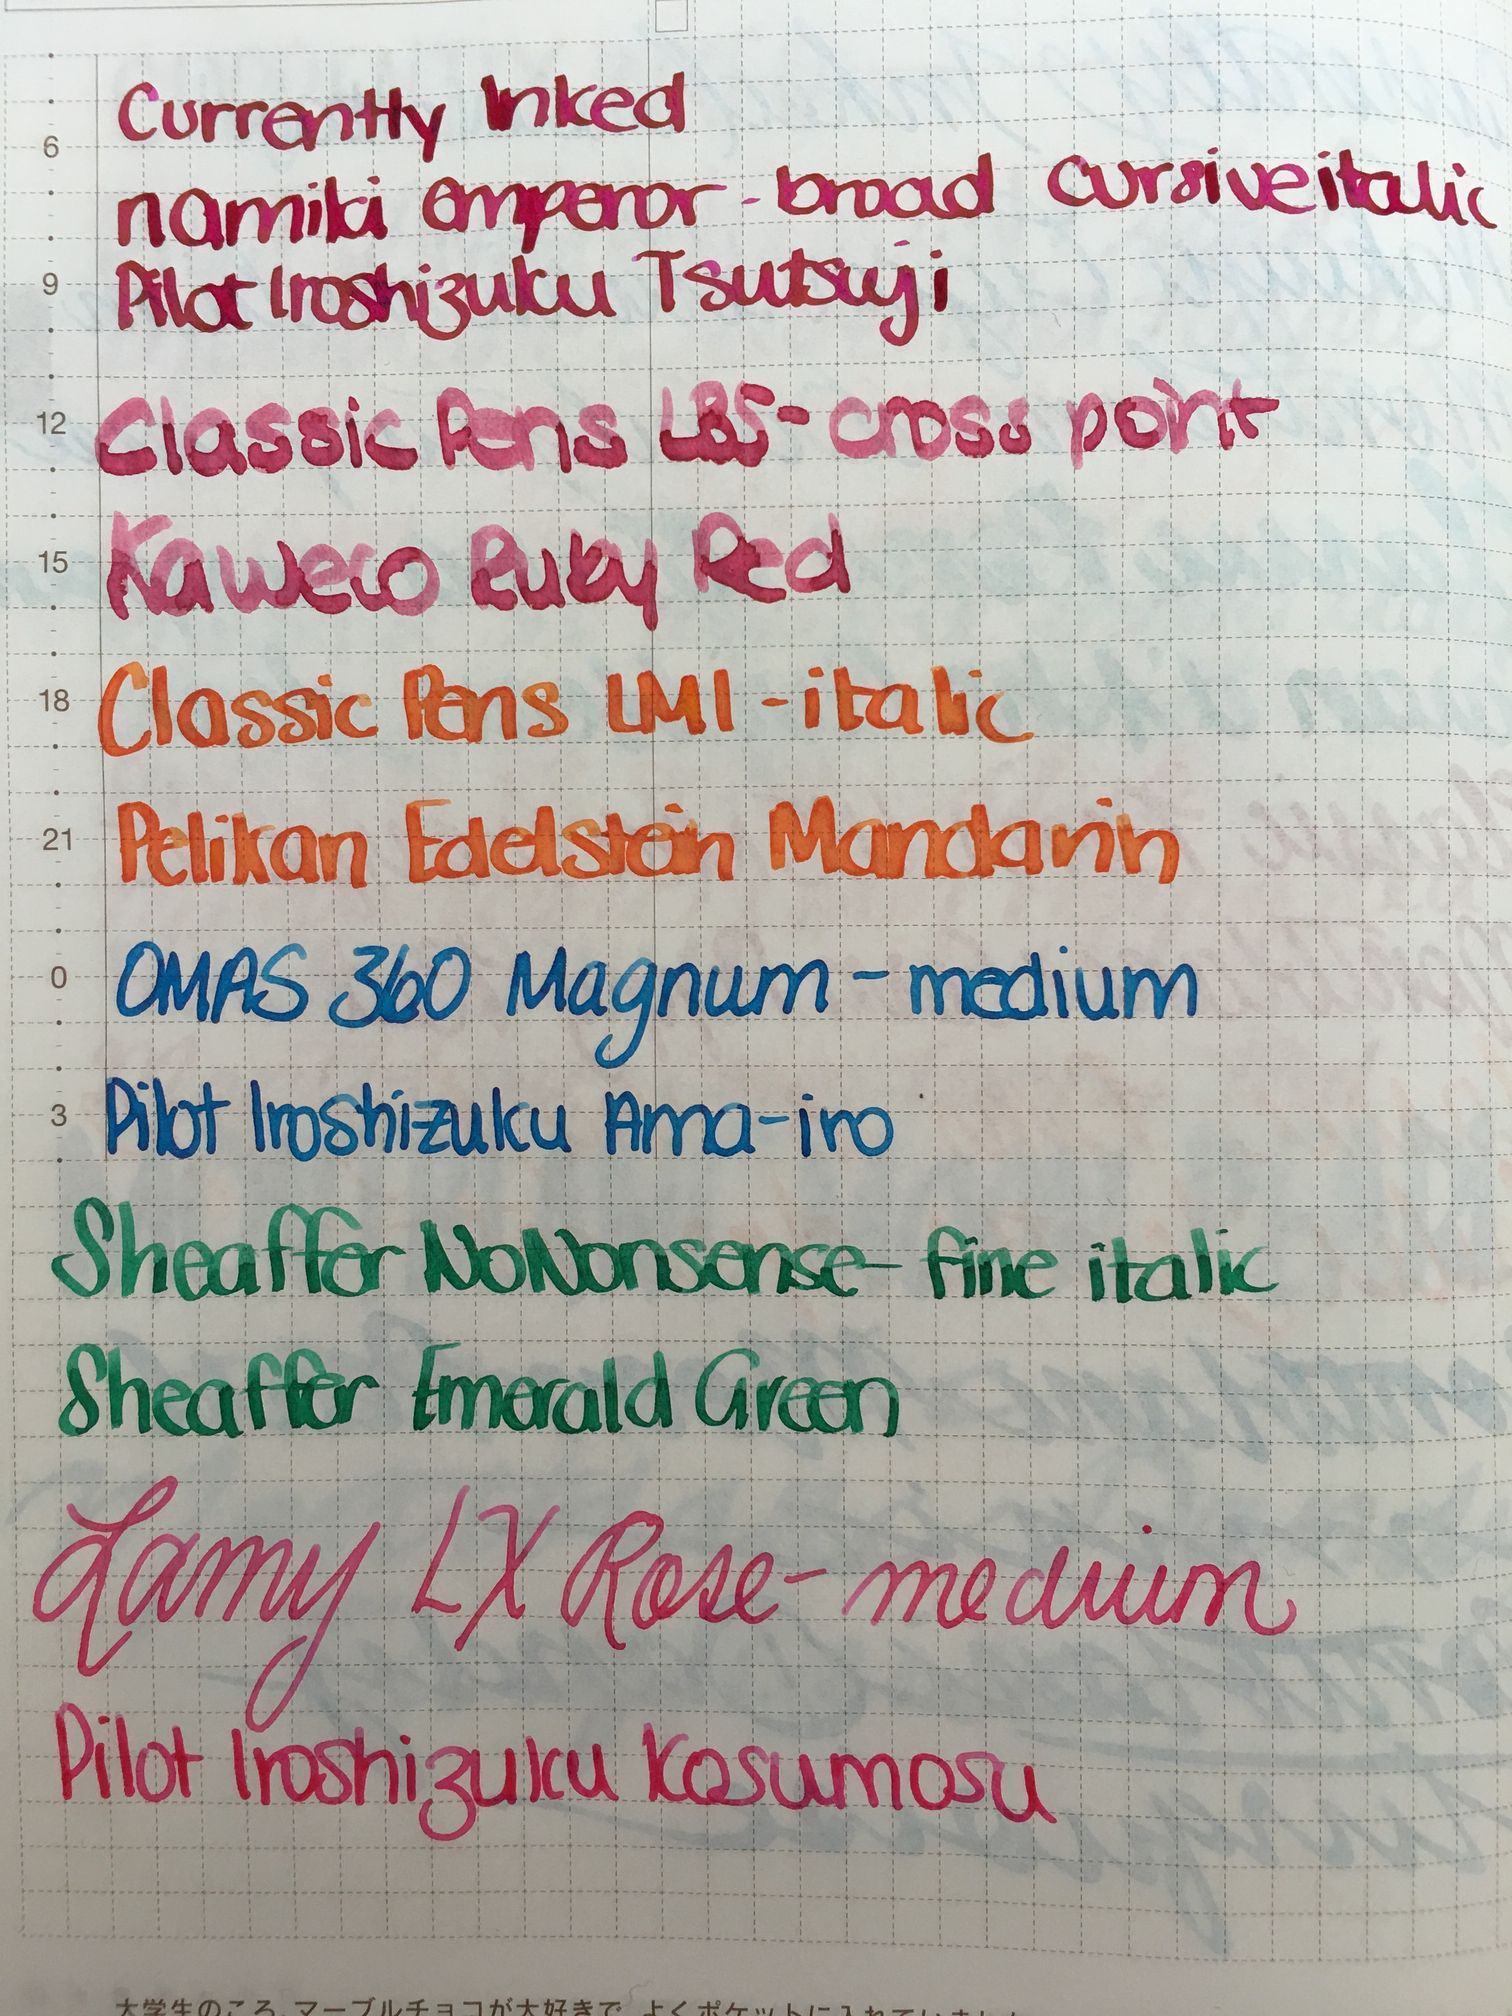 Currently Inked
6
namiki emperor - broad cursive italic
9
Pilot Iroshizuku Tsutsuji
12
Classic Pens LB5 - cross point
15
Kaweco Ruby Red
18
Classic Pens LM1 - italic
21
Pelikan Edelstein Mandarin
0
OMAS 360 Magnum - medium
3
Pilot Iroshizuku Ama-iro
Sheaffer NoNonsense - fine italic
Sheaffer Emerald Green
Lamy LX Rose - medium
Pilot Iroshizuku Kosumosu
大学生のころ、マーブルチョコが大好きで、よくポケットに入れていました